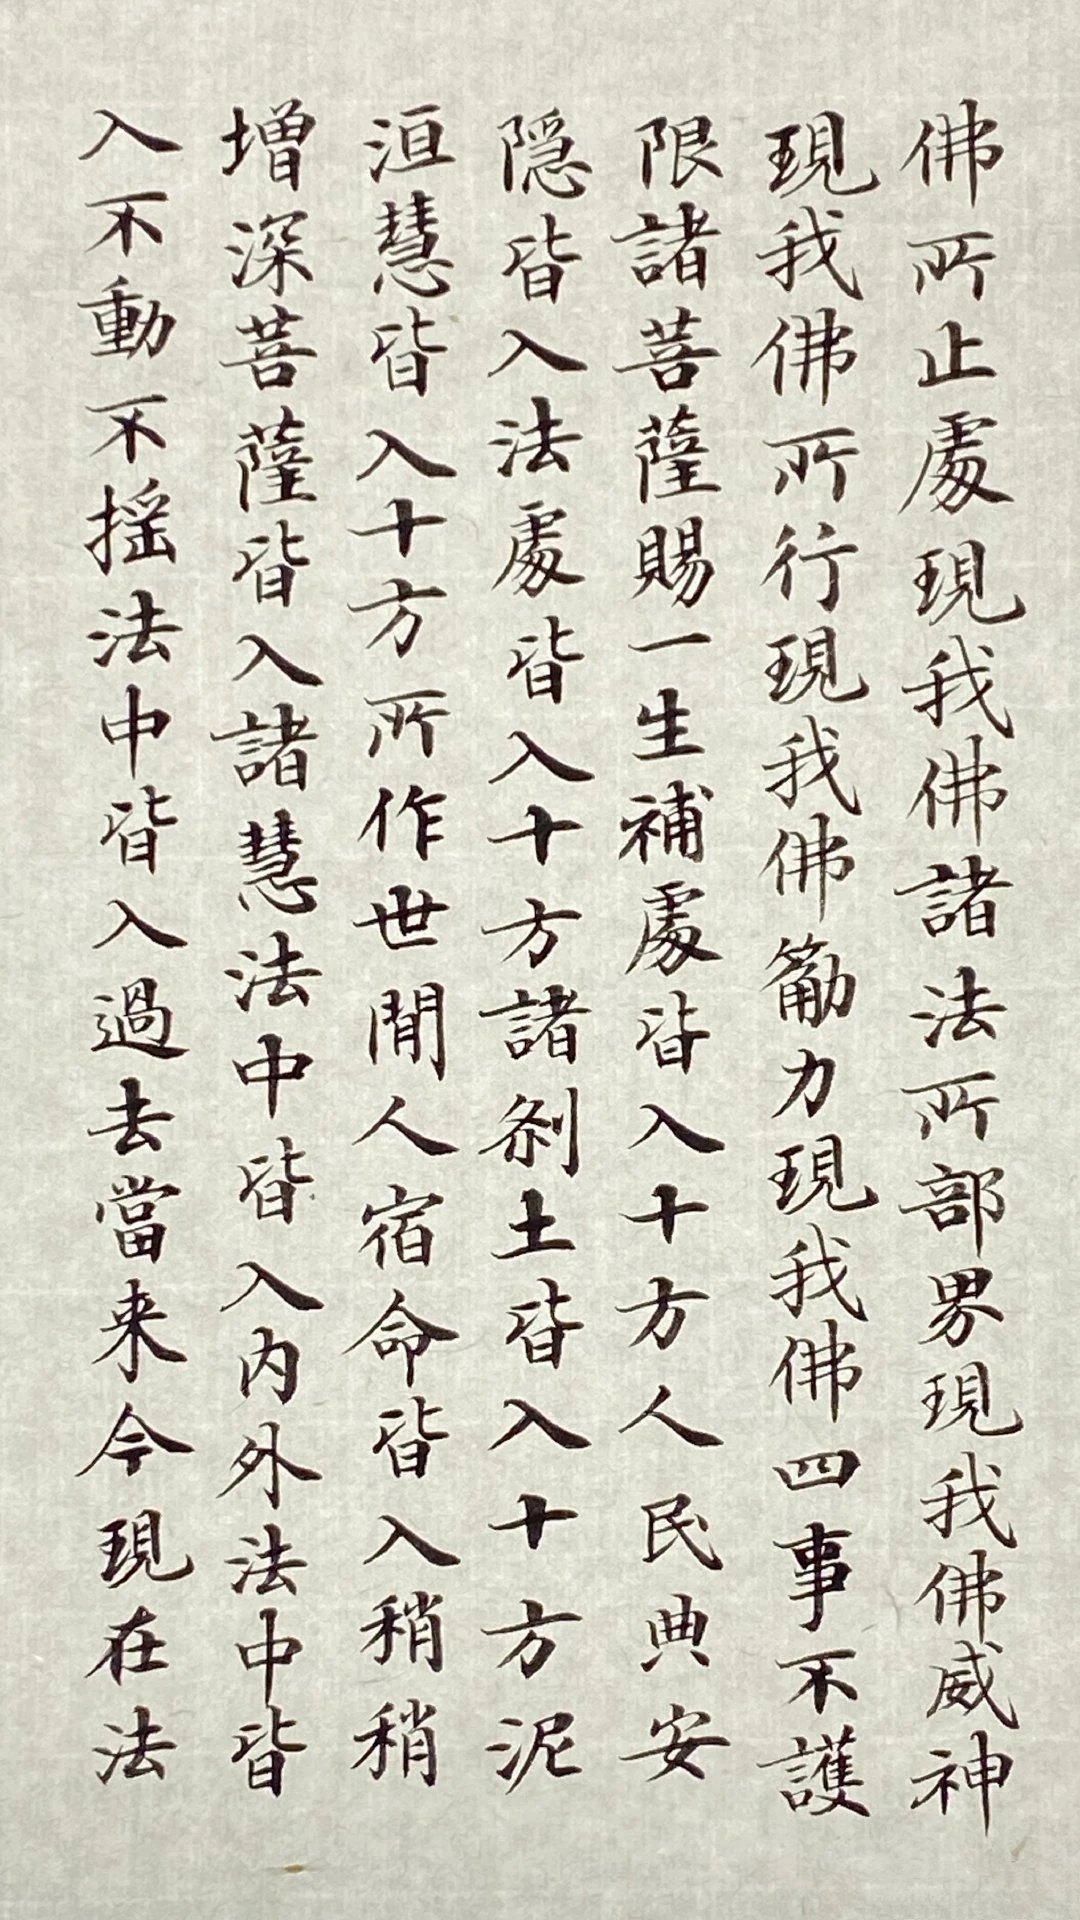 佛所止處現我佛諸法所部界現我佛威神
現我佛所行現我佛筋力現我佛四事不護
限諸菩薩賜一生補處皆入十方人民典安
隠皆入法處皆入十方諸刹土皆入十方泥
洹慧皆入十方所作世間人宿命皆入稍稍
増深菩薩皆入諸慧法中皆入内外法中皆
入不動不揺法中皆入過去當来今現在法